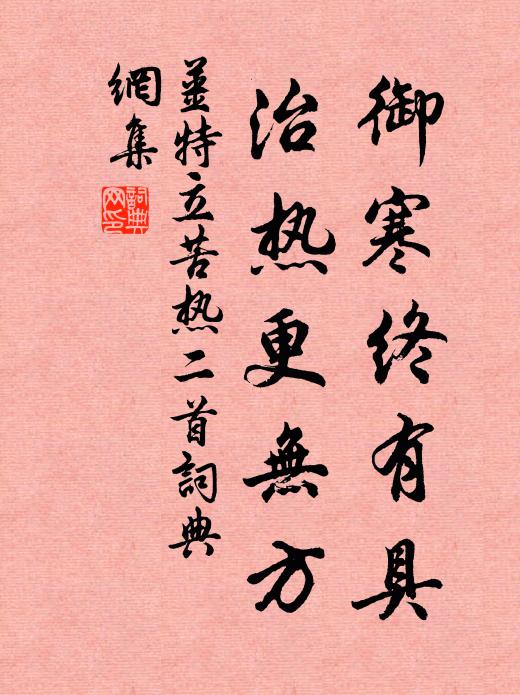 御寒终有具
治热更無方
姜特立苦热二首詞典
網集
詞典
网印